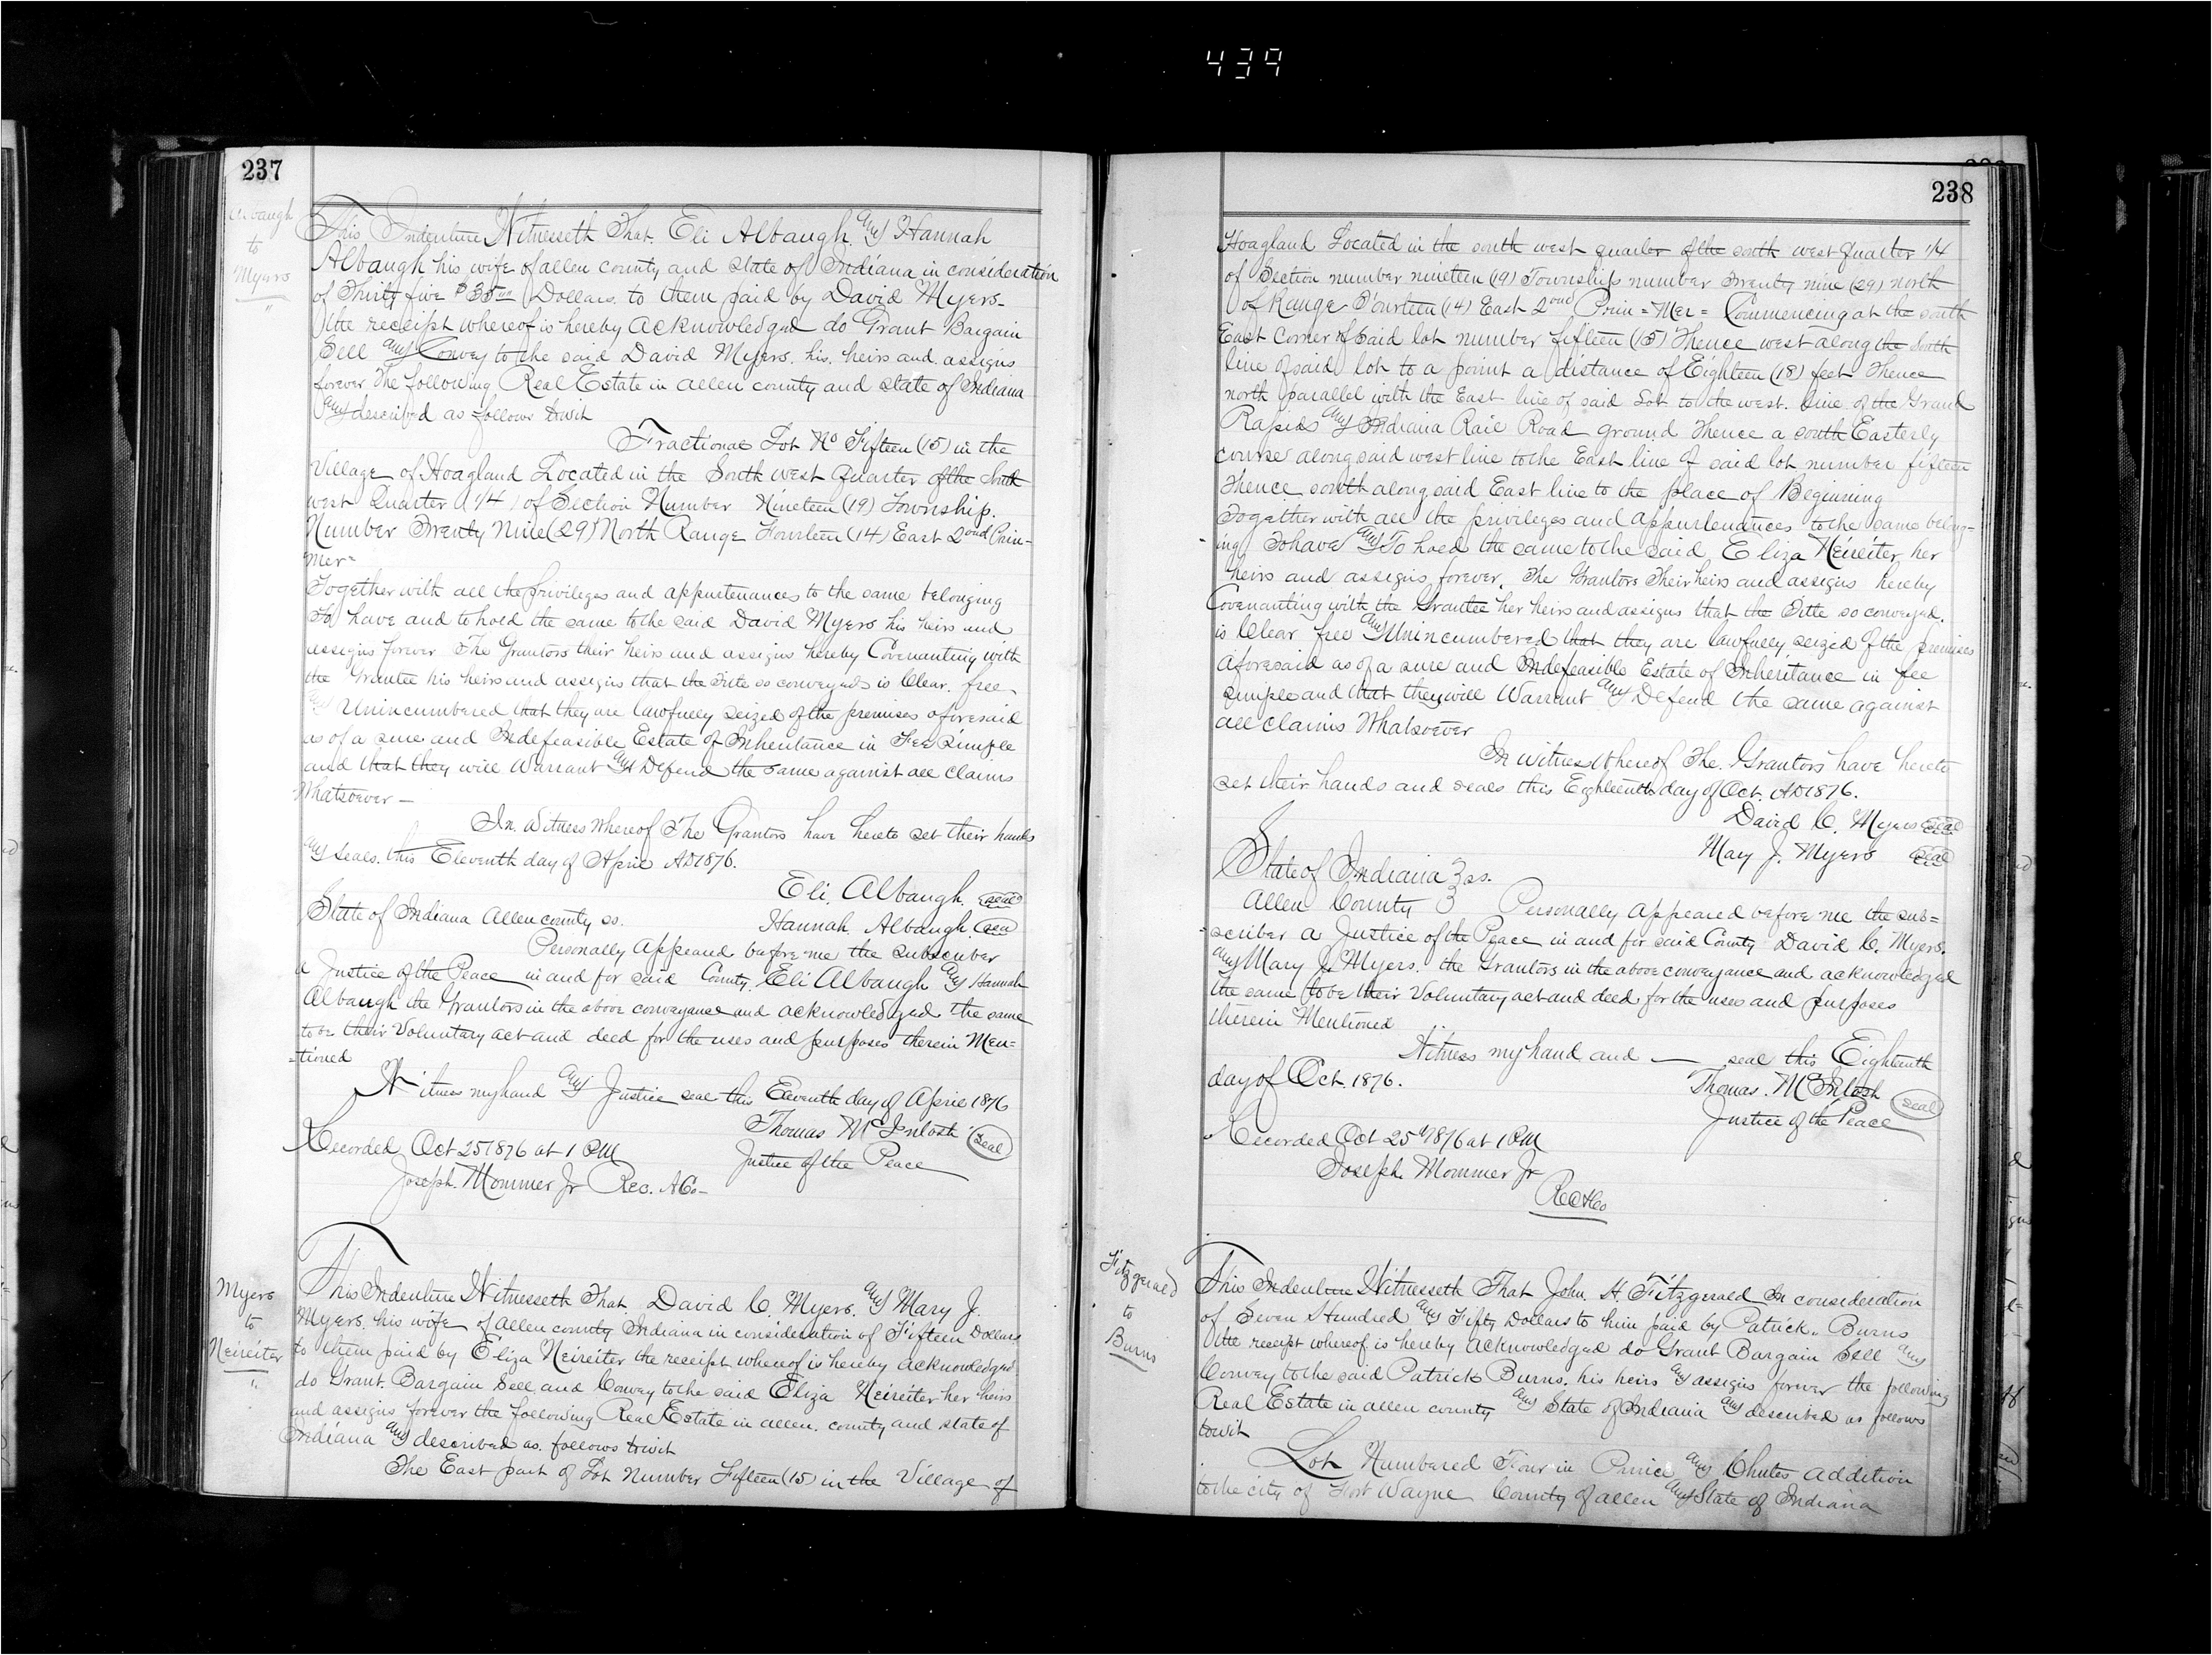 439
237
Albaugh
to
Myers
"
This Indenture Witnesseth That. Eli Albaugh. and Hannah
Albaugh his wife of allen county and State of Indiana in consideration
of Thirty five $35.00 Dollars. to them paid by David Myers-
the receipt whereof is hereby acknowledged do Grant Bargain
Sell and Convey to the said David Myers. his. heirs and assigns
forever the following Real Estate in allen county and state of Indiana
and described as follows towit
Fractional Lot No Fifteen (15) in the
Village of Hoagland Located in the South west Quarter of the South
west Quarter (1/4) of Section Number Nineteen (19) Township.
Number Twenty Nine (29) North Range Fourteen (14) East 2ond Prin-
Mer=
Together with all the privileges and appurtenances to the same belonging
To have and to hold the same to the said David Myers his heirs and
assigns forever The Grantors their heirs and assigns hereby Covenanting with
the Grantee his heirs and assigns that the Title so conveyed is Clear. free
and Unincumbered that they are lawfully seized of the premises aforesaid
as of a sure and Indefeasible Estate of Inheritance in Fee Simple
and that they will Warrant and Defend the same against all claims
Whatsoever –
In Witness whereof The Grantors have hereto set their hands
and seals. this Eleventh day of April AD 1876.
Eli. Albaugh. seal
State of Indiana Allen county ss. Hannah. Albaugh. seal
Personally Appeared before me the subscriber
a Justice of the Peace in and for said County. Eli Albaugh and Hannah
Albaugh the Grantors in the above conveyance and acknowledged the same
to be their Voluntary act and deed for the uses and purposes therein Men=
=tioned
Witness my hand and Justice seal this Eleventh day of April 1876
Thomas McIntosh seal
Recorded Oct 25 1876 at 1 PM Justice of the Peace
Joseph. Mommer Jr Rec. A Co-
Myers
to
Neireiter
"
This Indenture Witnesseth That. David C. Myers. and Mary J.
Myers. his wife of allen county Indiana in consideration of Fifteen Dollars
to them paid by Eliza Neireiter the receipt whereof is hereby acknowledged
do Grant. Bargain Sell and Convey to the said Eliza Neireiter her heirs
and assigns forever the following Real Estate in allen. county and state of
Indiana and described as. follows towit
The East part of Lot Number Fifteen (15) in the Village of
238
Hoagland Located in the south west quarter of the south west quarter 1/4
of Section number nineteen (19) Township number Twenty nine (29) north
of Range Fourteen (14) East 2ond Prin = Mer = Commencing at the south
East Corner of said lot number fifteen (15) Thence west along the South
line of said lot to a point a distance of Eighteen (18) feet Thence
north parallel with the East line of said Lot to the west. line of the Grand
Rapids and Indiana Rail Road ground Thence a south Easterly
course along said west line to the East line of said lot number fifteen
Thence south along said East line to the place of Beginning
Together with all the privileges and appurtenances to the same belong-
ing To have and To hold the same to the said, Eliza Neireiter, her
heirs and assigns forever. The Grantors Their heirs and assigns hereby
Covenanting with the Grantee her heirs and assigns that the Title so conveyed.
is Clear free and Unincumbered that they are lawfully seized of the premises
aforesaid as of a sure and Indefeasible Estate of Inheritance in fee
simple and that they will Warrant and Defend the same against
all claims Whatsoever
In witness Whereof The. Grantors have hereto
set their hands and seals this Eighteenth day of Oct. AD 1876.
David C. Myers seal
Mary J. Myers seal
State of Indiana } ss.
Allen County } Personally Appeared before me the sub=
scriber a Justice of the Peace in and for said County David C. Myers.
and Mary J. Myers. the Grantors in the above conveyance and acknowledged
the same to be their Voluntary act and deed, for the uses and purposes
therein Mentioned
Witness my hand and — seal this Eighteenth
day of Oct. 1876. Thomas. McIntosh seal
Justice of the Peace
Recorded Oct 25" 1876 at 1 PM
Joseph. Mommer Jr
Rec A Co
Fitzgerald
to
Burns
This Indenture Witnesseth That John. H. Fitzgerald In consideration
of Seven Hundred and Fifty Dollars to him paid by Patrick.. Burns
the receipt whereof is hereby acknowledged do Grant Bargain Sell and
Convey to the said Patrick Burns. his heirs and assigns forever the following
Real Estate in allen county and State of Indiana and described as follows
towit
Lot Numbered Four in and Chutes addition
to the city of Fort Wayne County of allen and State of Indiana